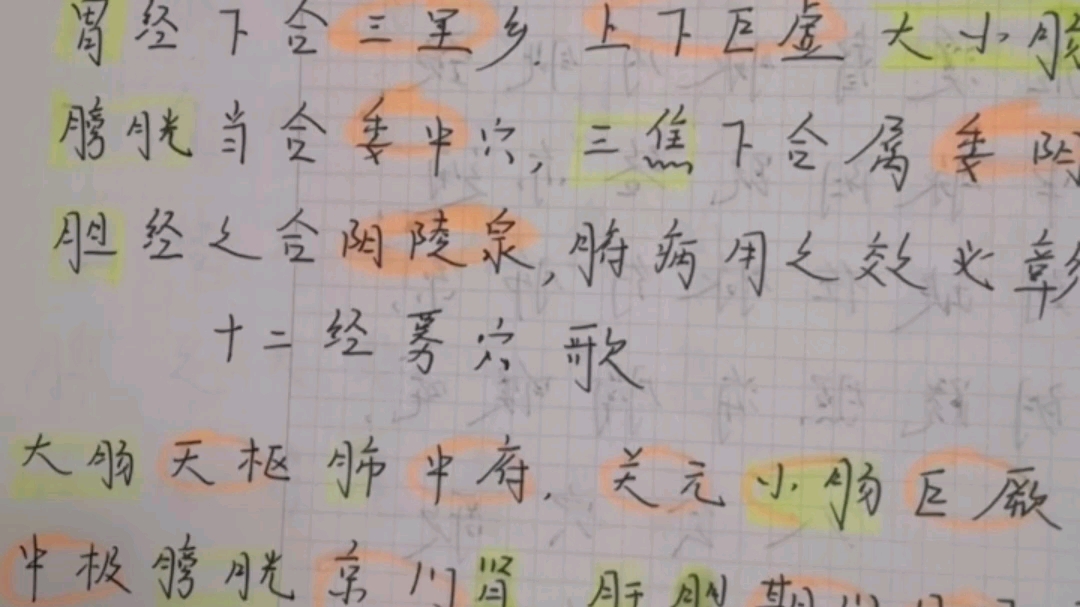 胃经下合三里乡,上下巨虚大小肠
膀胱当合委中穴,三焦下合属委阳
胆经之合阴陵泉,腑病用之效必彰
十二经募穴歌
大肠天枢肺中府,关元小肠巨厥
中极膀胱京门肾 肝 期门